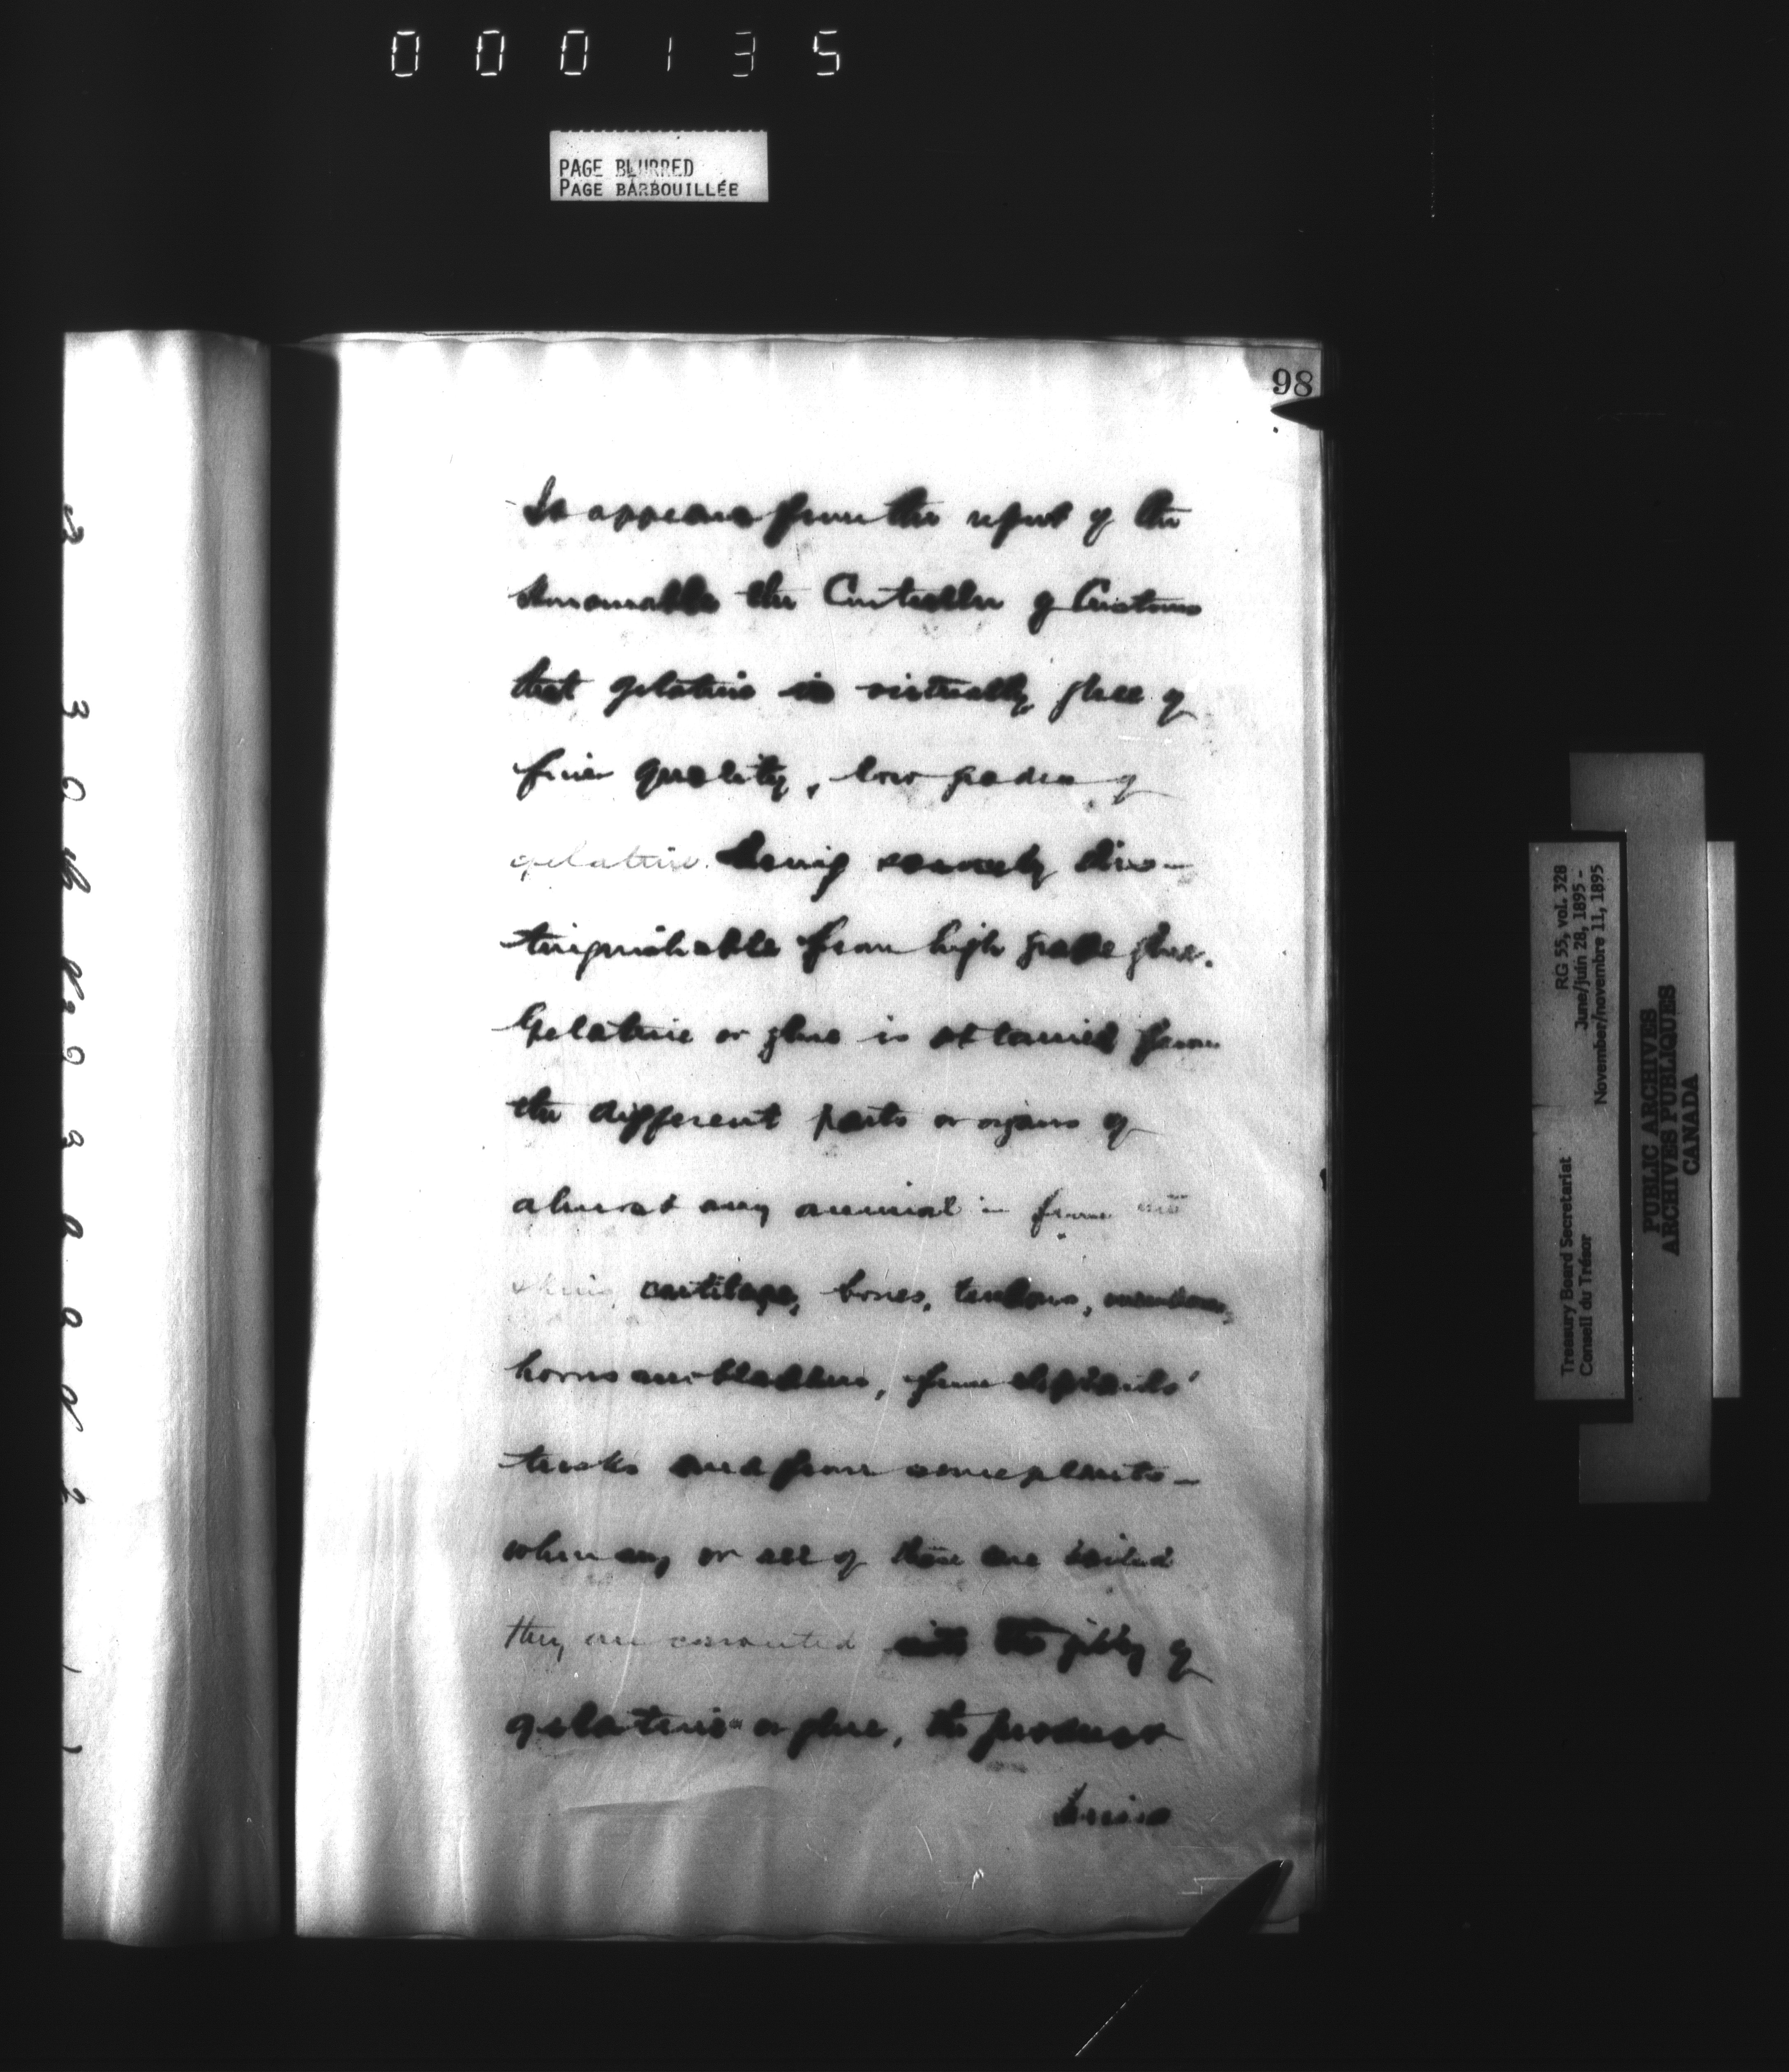 000135
PAGE BLURRED
PAGE BARBOUILLÉE
98
It appears from the report of the
Honourable the Controller of Customs
that gelatine is virtually glue of
finer quality, low grades of
gelatine being scarcely dis-
tinguishable from high grade glue.
Gelatine or glue is obtained from
the different parts or organs of
almost any animal – from
skins, cartilage, bones, tendons, membranes,
horns and bladders, from elephants'
tusks and from some plants –
when any or all of these are boiled
they are converted into the jelly of
gelatine or glue, the product
being
RG 55, vol. 328
June/juin 28, 1895 -
November/novembre 11, 1895
Treasury Board Secretariat
Conseil du Trésor
PUBLIC ARCHIVES
ARCHIVES PUBLIQUES
CANADA